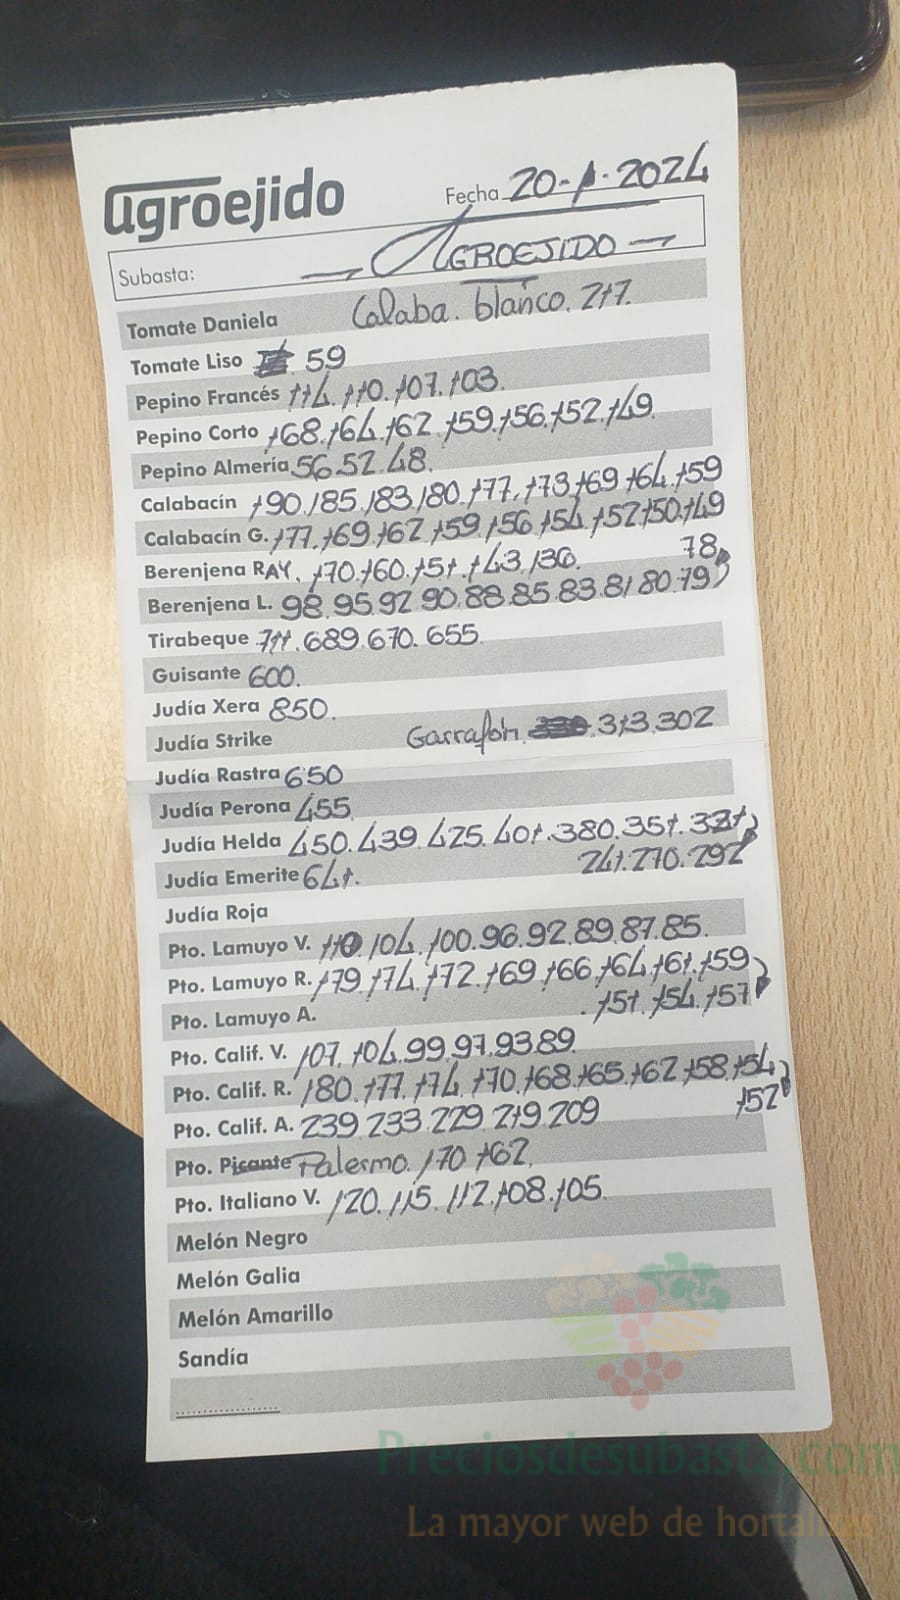 agroejido
Fecha 20-1-2024
Subasta: — AGROEJIDO —
Tomate Daniela Calaba. blanco. 217.
Tomate Liso 59
Pepino Francés 114. 110. 107. 103.
Pepino Corto 168. 164. 162. 159. 156. 152. 149
Pepino Almería 56. 52. 48.
Calabacín 190. 185. 183. 180. 177. 173. 169. 164. 159
Calabacín G. 177. 169. 162. 159. 156. 154. 152. 150. 149
Berenjena RAY. 170. 160. 151. 143. 136.
78
Berenjena L. 98. 95. 92. 90. 88. 85. 83. 81. 80. 79
Tirabeque 711. 689. 670. 655
Guisante 600.
Judía Xera 850.
Judía Strike Garrafón. 313. 302
Judía Rastra 650
Judía Perona 455
Judía Helda 450. 439. 425. 401. 380. 351. 321
Judía Emerite 641. 241. 270. 292
Judía Roja
Pto. Lamuyo V. 110. 104. 100. 96. 92. 89. 87. 85.
Pto. Lamuyo R. 179. 174. 172. 169. 166. 164. 161. 159
Pto. Lamuyo A. 151. 154. 157
Pto. Calif. V. 107. 104. 99. 97. 93 89
Pto. Calif. R. 180. 177. 174. 170. 168. 165. 162. 158. 154
152
Pto. Calif. A. 239 233. 229 219. 209
Pto. Picante Palermo. 170 162.
Pto. Italiano V. 120. 115. 112. 108. 105.
Melón Negro
Melón Galia
Melón Amarillo
Sandía
Preciosdesubasta.com
La mayor web de hortalizas